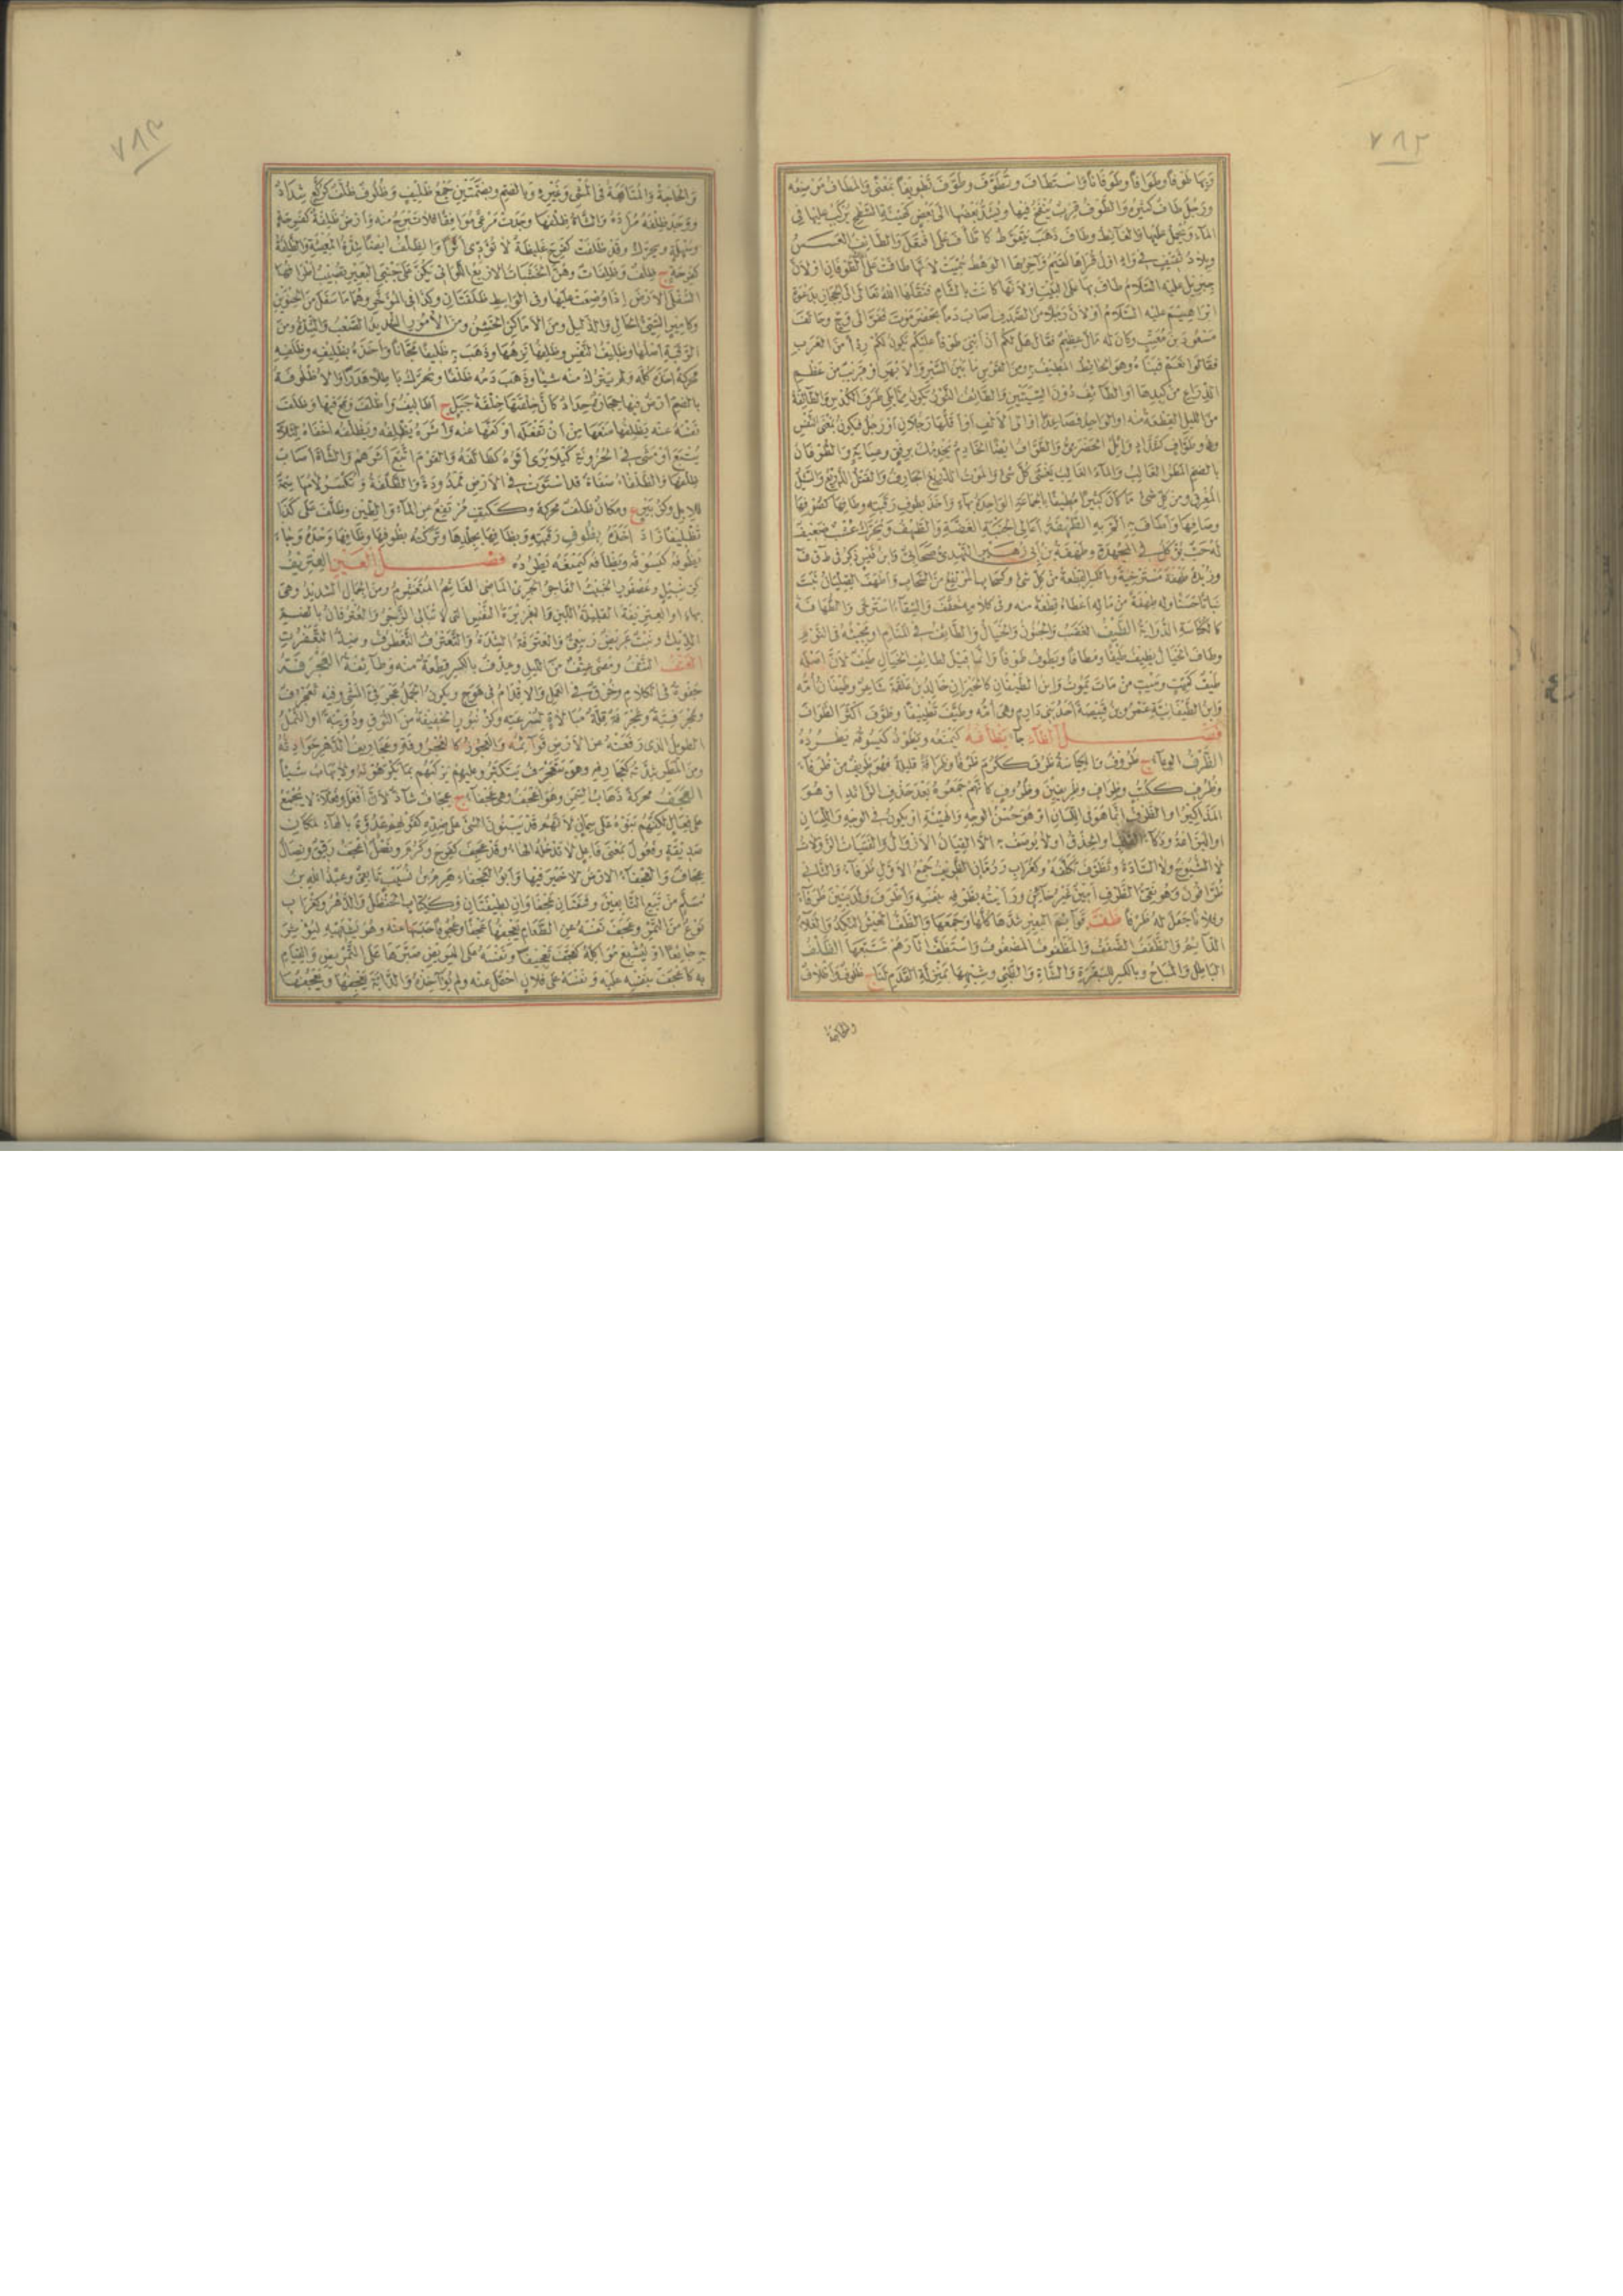 ٧٨٢
وبها طوفا وطوافا وطوفانا واستطاف وتطوف وطوف تطويفا بمعنى والمطاف موضعه
ورجل طاف كثيره والطوف قرب ينفخ فيها ويشد بعضها الى بعض كهيئة السطح يركب عليها في
الماء ويحمل عليها والغائط وطاف ذهب يتغوط كاطاف على افتعل والطائف العسس
وبلاد ثقيف في واد اول قراها لقيم وآخرها الوهط سميت لانها طافت على الماء في الطوفان او لان
جبريل عليه السلام طاف بها على البيت او لانها كانت بالشام فنقلها الله تعالى الى الحجاز بدعوة
ابراهيم عليه السلام او لان رجلا من الصدف اصاب دما بحضرموت ففر الى وج وحالف
مسعود بن معتب وكان له مال عظيم فقال هل لكم ان ابني طوفا عليكم يكون لكم ردءا من العرب
فقالوا نعم فبناه وهو الحائط المطيف به ومن القوس ما بين السية والابهر او قريب من عظم
الذراع من كبدها او الطائفان دون السيتين والطائف الثور يكون مما يلي طرف الكدس والطائفة
من الشيء القطعة منه او الواحد فصاعدا او الى الالف او اقلها رجلان او رجل فيكون بمعنى النفس
وذو طواف كشداد وائل الحضرمي والطواف ايضا الخادم يخدمك برفق وعناية والطوفان
بالضم المطر الغالب والماء الغالب يغشى كل شيء والموت الذريع الجارف والقتل الذريع والسيل
المغرق ومن كل شيء ما كان كثيرا مطيفا بالجماعة الواحدة بهاء واخذ بطوف رقبته وطافها كصوفها
وصافها واطاف به الم به الطهف اعالي الجنبة الغضة والطهف ويحرك عشب ضعيف
له حب يؤكل في المجهدة وطهفة بن ابي زهير النهدي صحابي وابن قيس ذكر في ط ق ف
وزبدة طهفة مسترخية وبالكسر القطعة من كل شيء وكسحاب المرتفع من السحاب واطهف الصليان نبت
نباتا حسنا وله طهفة من ماله اعطاه قطعة منه وفي كلامه خفف والسقاء استرخى والطهافة
كالكناسة الذؤابة الطيف الغضب والجنون والخيال الطائف في المنام او مجيئه في النوم
وطاف الخيال يطيف طيفا ومطافا ويطوف طوفا وانما قيل لطائف الخيال طيف لان اصله
طيف كميت وميت من مات يموت وابن الطيفان كالخيزران خالد بن علقمة شاعر وطيفان امه
وابن الطيفانية عمرو بن قبيصة احد بني دارم وهي امه وطيف تطييفا وطوف اكثر الطواف
فصل الظاء جاء يظافه كيمنعه ويظوفه كيسوقه يطرده
الظرف الوعاء ج ظروف والكياسة ظرف ككرم ظرفا وظرافة قليلة فهو ظريف من ظرفاء
وظرف ككتب وظراف وظريفين وظروف كانهم جمعوه بعد حذف الزائد او هو
كالمذاكير او الظرف انما هو في اللسان او هو حسن الوجه والهيئة او يكون في الوجه واللسان
او البزاعة وذكاء القلب والحذق او لا يوصف به الا الفتيان الازوال والفتيات الزولات
لا الشيوخ ولا السادة وتظرف تكلفه وكغراب ورمان الظريف جمع الاول ظرفاء والثاني
ظرافون وهو نقي الظرف امين غير خائن ورأيته بظرفه بنفسه واظرف ولد بنين ظرفاء
وفلانا جعل له ظرفا ظف قوائم البعير شدها كلها وجمعها والظف العيش النكد والغلاء
الدائم والظفف الضفف والمظفوف المضفوف واستظف آثارهم تتبعها الظلف
الباطل والمباح وبالكسر للبقرة والشاة والظبي وشبهها بمنزلة القدم لنا ج ظلوف واظلاف
والحاجة
٧٨٣
والحاجة والمتابعة في المشي وغيره وبالضم وبضمتين جمع ظليف وظلوف ظلف كركع شداد
ووجد ظلفه مراده والشاة ظلفها وجدت مرعى موافقا فلا تبرح منه وارض ظلفة كفرحة
وسهلة ويحرك وقد ظلفت كفرح غليظة لا تؤدي اثرا والظلف ايضا شدة المعيشة والظلفة
كفرحة ج ظلف وظلفات وهن الخشبات الاربع اللواتي يكن على جنبي البعير تصيب اطرافها
السفلى الارض اذا وضعت عليها وفي الواسط ظلفتان وكذا في المؤخر وهما ما سفل من الحنوين
وكامير السيئ الحال والذليل ومن الاماكن الخشن ومن الامور الشديد الصعب والشدة ومن
الرقبة اصلها وظليف النفس وظلفها نزهها وذهب به ظليفا مجانا واخذه بظليفه وظلفه
محركة اخذه كله ولم يترك منه شيئا وذهب دمه ظلفا ويحرك باطلا هدرا والاظلوفة
بالضم ارض فيها حجارة حداد كأن خلقتها خلقة جبل ج اظاليف واظلف وقع فيها وظلف
نفسه عنه يظلفها منعها من ان تفعله او كفها عنه واثره يظلفه ويظلفه اخفاه لئلا
يتبع او مشى في الحزونة كيلا يرى اثره كظالفه والقوم اتبع اثرهم والشاة اصاب
ظلفها والظلفاء صفاة قد استوت في الارض ممدودة والظلفة وتكسر لامها سمة
للابل وكزبير ع ومكان ظلف محركة وككتف مرتفع عن الماء والطين وظلف على كذا
تظليفا زاد اخذه بظوف رقبته وبظافها بجلدها وتركته بظوفها وظافها وحده وجاء
يظوفه كيسوقه ويظافه كيمنعه يطرده فصل العين العتريف
كزنبيل وعصفور الخبيث الفاجر الجريء الماضي الغاشم المتغشم ومن الجمال الشديد وهي
بهاء او العتريفة القليلة اللبن والعزيزة النفس التي لا تبالي الزجر والعترفان بالضم
الديك ونبت عريض ربيعي والعترفة الشدة والتعترف التغطرف وضد التعفرت
العتف النتف ومضى عتف من الليل وعدف بالكسر قطعة منه وطائفة العجرفة
جفوة في الكلام وخرق في العمل والاقدام في هوج ويكون الجمل عجرفي المشي وفيه تعجرف
وعجرفية وعجرفة قلة مبالاة لسرعته وكزنبور الخفيفة من النوق ودويبة او النمل
الطويل الذي رفعته عن الارض قوائمه والعجوز كالعجروفة وعجاريف الدهر حوادثه
ومن المطر شدته كعجارفه وهو يتعجرف يتكبر وعليهم يركبهم بما يكرهونه ولا يهاب شيئا
العجف محركة ذهاب السمن وهو اعجف وهي عجفاء ج عجاف شاذ لان افعل وفعلاء لا يجمع
على فعال لكنهم بنوه على سمان لانهم قد يبنون الشيء على ضده كقولهم عدوة بالهاء لمكان
صديقة وفعول بمعنى فاعل لا تدخله الهاء وقد عجف كفرح وكرم ونصل اعجف رقيق ونصال
عجاف والعجفاء الارض لا خير فيها وابو العجفاء هرم بن نسيب تابعي وعبد الله بن
مسلم من تبع التابعين وشفتان عجفاوان لطيفتان وككتاب الحنطل والدهر وكغراب
نوع من التمر وعجف نفسه عن الطعام يعجفها عجفا وعجوفا حبسها عنه وهو يشتهيه ليؤثر
به جائعا او ليشبع مؤاكله كعجف تعجيفا ونفسه على المريض صبرها على التمريض والقيام
به كاعجف بنفسه عليه ونفسه على فلان احتمل عنه ولم يؤاخذه والدابة يعجفها ويعجفها